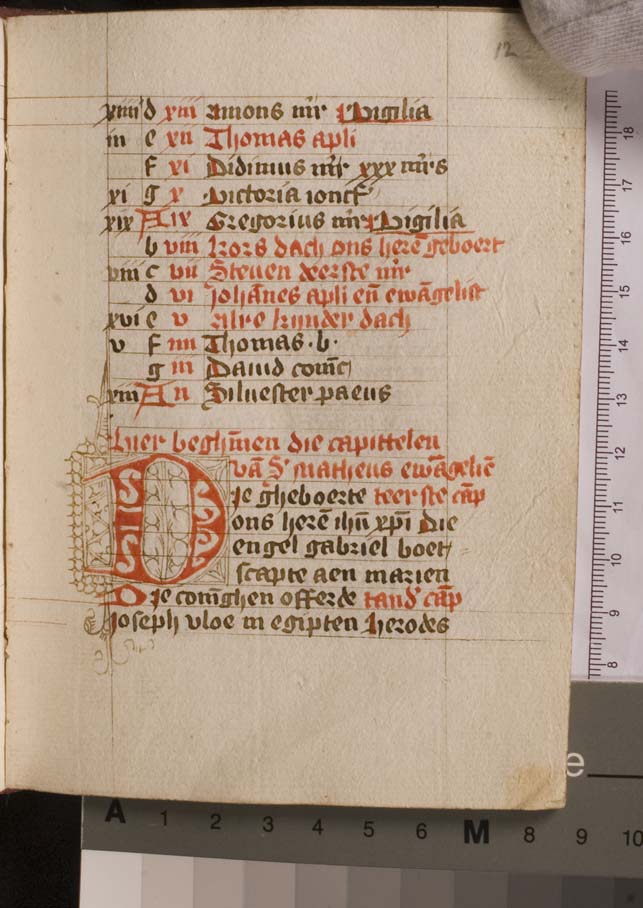 12
xiiii d xiii Amons mr Vigilia
iii e xii Thomas apli
f xi Didimus mr xxx mrs
xi g x Victoria ioncf
xix A ix Gregorius mr Vigilia
b viii Kors dach ons herē geboert
viii c vii Steuen deerste mr
d vi Johānes apli eñ ewāgelist
xvi e v Alre kinder dach
v f iiii Thomas · b ·
g iii Dauid comc
xiii A ii Siluester paeus
Hier beghīnen die capittelen
vā S matheus ewāgeliē
Die gheboerte teerste cap
ons herē ihū xpī die
engel gabriel boet
scapte aen marien
Die conīghen offerde tand cap
Joseph vloe in egipten herodes
18
17
16
15
14
13
12
11
10
9
8
e
A 1 2 3 4 5 6 M 8 9 10